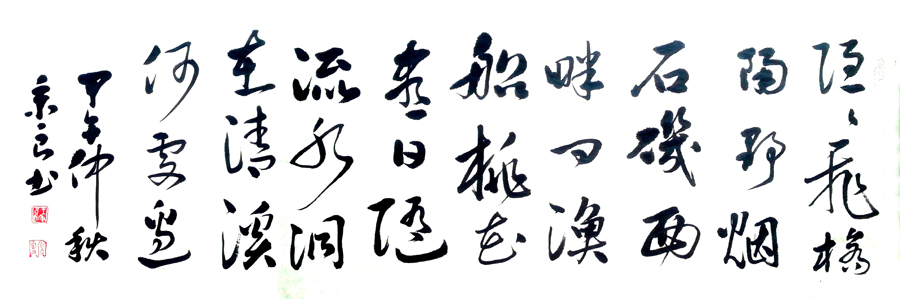 隱〻飛橋
隔野烟
石磯西
畔問漁
船桃花
盡日隨
流水洞
在清溪
何處邊
甲午仲秋
良书